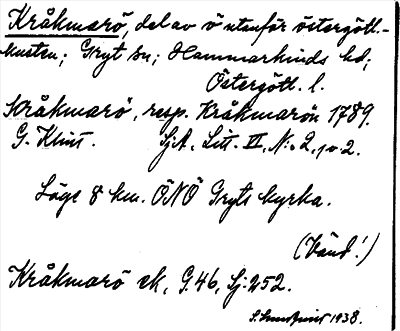 Kråkmarö, del av ö utanför östergötl.-
kusten; Gryt sn; Hammarkinds hd;
Östergötl. l.
Kråkmarö, resp. Kråkmarön 1789.
G. Klint. SjA, Litt. VI, N:o 2, 1 o. 2.
Läge 8 km. ÖNÖ Gryts kyrka.
(Vänd!)
Kråkmarö ek, G.46, Sj:252.
1938.